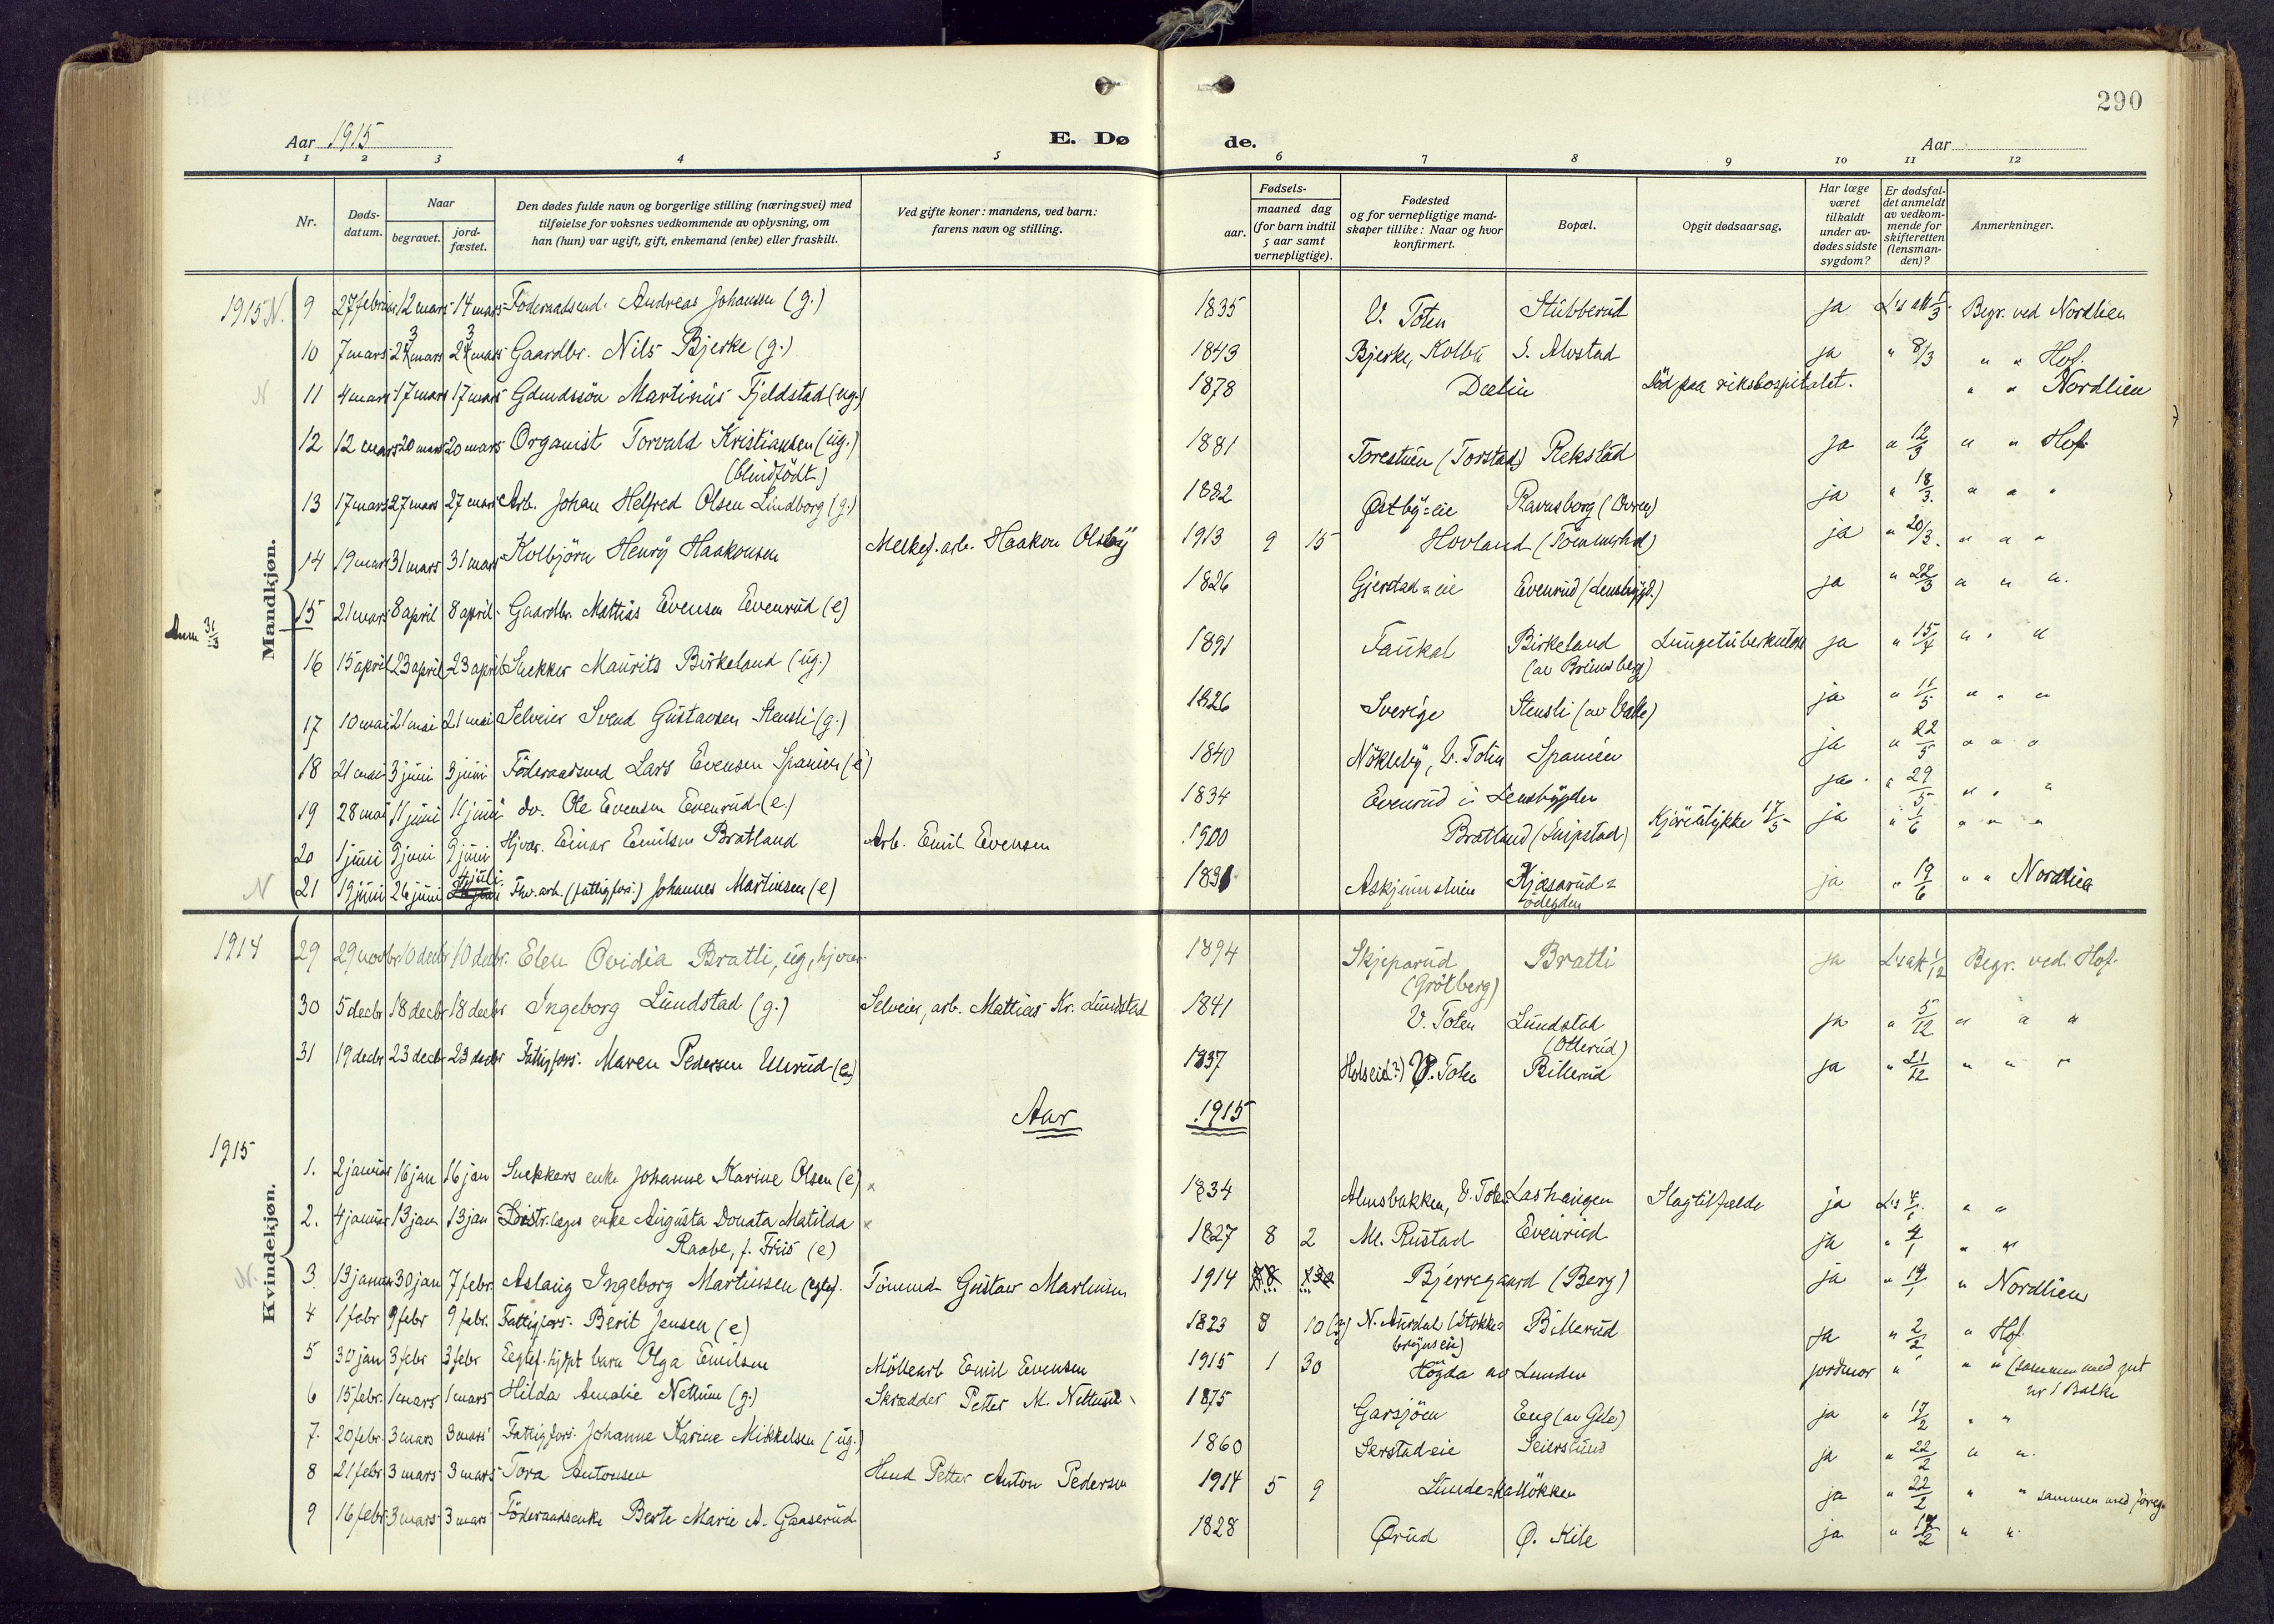 290
Aar 1915
E. Dø de.
Aar
1 2 3 4 5 6 7 8 9 10 11 12
Nr.
Døds-datum.
Naar
begravet.
jord-fæstet.
Den dødes fulde navn og borgerlige stilling (næringsvei) med
tilføielse for voksnes vedkommende av oplysning, om
han (hun) var ugift, gift, enkemand (enke) eller fraskilt.
Ved gifte koner: mandens, ved barn:
farens navn og stilling.
Fødsels-
aar. maaned dag
(for barn indtil
5 aar samt
vernepligtige).
Fødested
og for vernepligtige mand-
skaper tillike: Naar og hvor
konfirmert.
Bopæl.
Opgit dødsaarsag.
Har læge
været
tilkaldt
under av-
dødes sidste
sygdom?
Er dødsfal-
det anmeldt
av vedkom-
mende for
skifteretten
(lensman-
den)?
Anmerkninger.
Mandkjøn.
1915 N. 9 27 februar 12 mars 14 mars Föderaadsmd. Andreas Johansen (g.) 1835 V. Toten Stubberud ja Begr. ved Nordlien
10 7 mars 23 mars 23 mars Gaardbr. Nils Bjerke (g.) 1843 Bjerke, Kolbu S. Alvstad ja " 8/3 " " Hof.
N 11 4 mars 17 mars 17 mars Gdmdssön Martinius Fjeldstad (ug.) 1878 Dælin Död paa rikshospitalet. " " Nordlien
12 12 mars 20 mars 20 mars Organist Torvald Kristiansen (ug.) 1881 Torestuen (Torstad) Rekstad ja " 12/3 " " Hof
(blindfödt)
13 17 mars 27 mars 27 mars Arb. Johan Helfred Olsen Lundborg (g.) 1882 Østby=eie Ravnsborg ja " 18/3 " " "
14 19 mars 31 mars 31 mars Kolbjörn Henry Haakonsen Melkef. arb. Haakon Olsby 1913 9 15 Hovland ja " 20/3 " " "
Anm 31/3 15 21 mars 8 april 8 april Gaardbr. Mattias Evensen Evenrud (e) 1826 Gjerstad=eie Evenrud (Lensbygd.) ja " 22/3 " " "
16 15 april 23 april 23 april Snekker Maurits Birkeland (ug.) 1891 Faukal Birkeland Lungetuberkulose ja " 15/4 " " "
17 10 mai 21 mai 21 mai Selveier Svend Gustavsen Stensli (g.) 1826 Sverige Stensli (av Valle) ja " 11/5 " " "
18 21 mai 3 juni 3 juni Föderaadsmd Lars Evensen Spanien (e) 1840 Nökleby, V. Toten Spanien ja " 22/5 " " "
19 28 mai 11 juni 11 juni do. Ole Evensen Evenrud (e.) 1834 Evenrud i Lensbygden ja " 29/5 " " "
20 1 juni 9 juni 9 juni Hjvær. Einar Emilsen Bratland Arb. Emil Evensen 1900 Bratland Kjöreulykke 17/5 ja " 1/6 " " "
N 21 19 juni 26 juni 4 juli Fhv. arb. (fattigfors.) Johannes Martinsen (e) 1831 Askjumstuen Kjøsarud= ja " 19/6 " " Nordlien
ödegden
Kvindekjøn.
1914 29 29 novbr 10 decbr 10 decbr. Elen Ovidia Bratli, ug, hjvær 1894 Skjeparud Bratli ja Begr. ved. Hof.
(Grötberg)
30 5 decbr 18 decbr 18 decbr Ingeborg Lundstad (g.) Selveier, arb. Mattias Kr. Lundstad 1841 V. Toten Lundstad ja " 5/12 " " "
(Otterud)
31 19 decbr 23 decbr 23 decbr Fattigfors. Maren Pedersen Ullerud (e) 1837 Holseid(?) V. Toten Billerud ja " 21/12 " " "
Aar 1915
1915 1. 2 januar 16 jan 16 jan Snekkers enke Johanne Karine Olsen (e) 1834 Almsbakken, V. Toten Lashaugen Slagtilfælde ja " "
2. 4 januar 13 jan 13 jan Distr. læges enke Augusta Donata Matilda 1827 8 2 Ml. Rustad Evenrud ja " 4/1 " "
Raabe, f. Friis (e)
N. 3 13 januar 30 jan 7 febr. Aslaug Ingeborg Martinsen (egtef.) Tömmerm Gustav Martinsen 1914 Bjerregaard (Berg) ja " 14/1 " Nordlien
4 1 febr 9 febr 9 febr. Fattigfors. Berit Jensen (e) 1823 8 10 N. Aurdal Billerud ja " 2/2 " Hof.
5 30 jan 3 febr 3 febr Egtef. hjdpt barn Olga Emilsen Möllearb Emil Evensen 1915 1 30 Högda av Lunden jordmor " " " (sammen med gut
nr 1 Balke
6 15 febr. 1 mars 1 mars Hilda Amalie Nettum (g.) Skrædder Petter M. Nettum 1875 Garsjöen Eng ja " 17/2 " "
7. 20 febr. 3 mars 3 mars Fattigfors. Johanne Karine Mikkelsen (ug.) 1860 Serstad=eie Seierslund ja " 22/2 " "
8 21 febr 3 mars 3 mars Tora Antonsen Hmd Petter Anton Pedersen 1914 5 9 Lunde=kallökken ja " 22/2 " " sammen med foreg.
9 16 febr. 3 mars 3 mars Föderaadsenke Berte Marie A. Gaaserud 1828 Ørud Ø. Kile ja " 17/2 " "